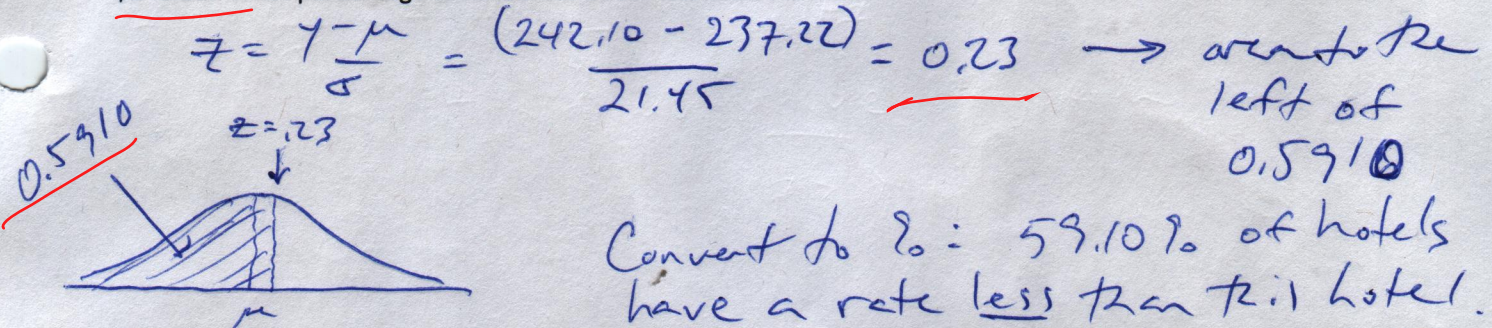 z = y - μ / σ = (242.10 - 237.22) / 21.45 = 0.23 → area to the
left of
0.5910
z = .23
0.5910
μ
Convert to %: 59.10% of hotels
have a rate less than this hotel.